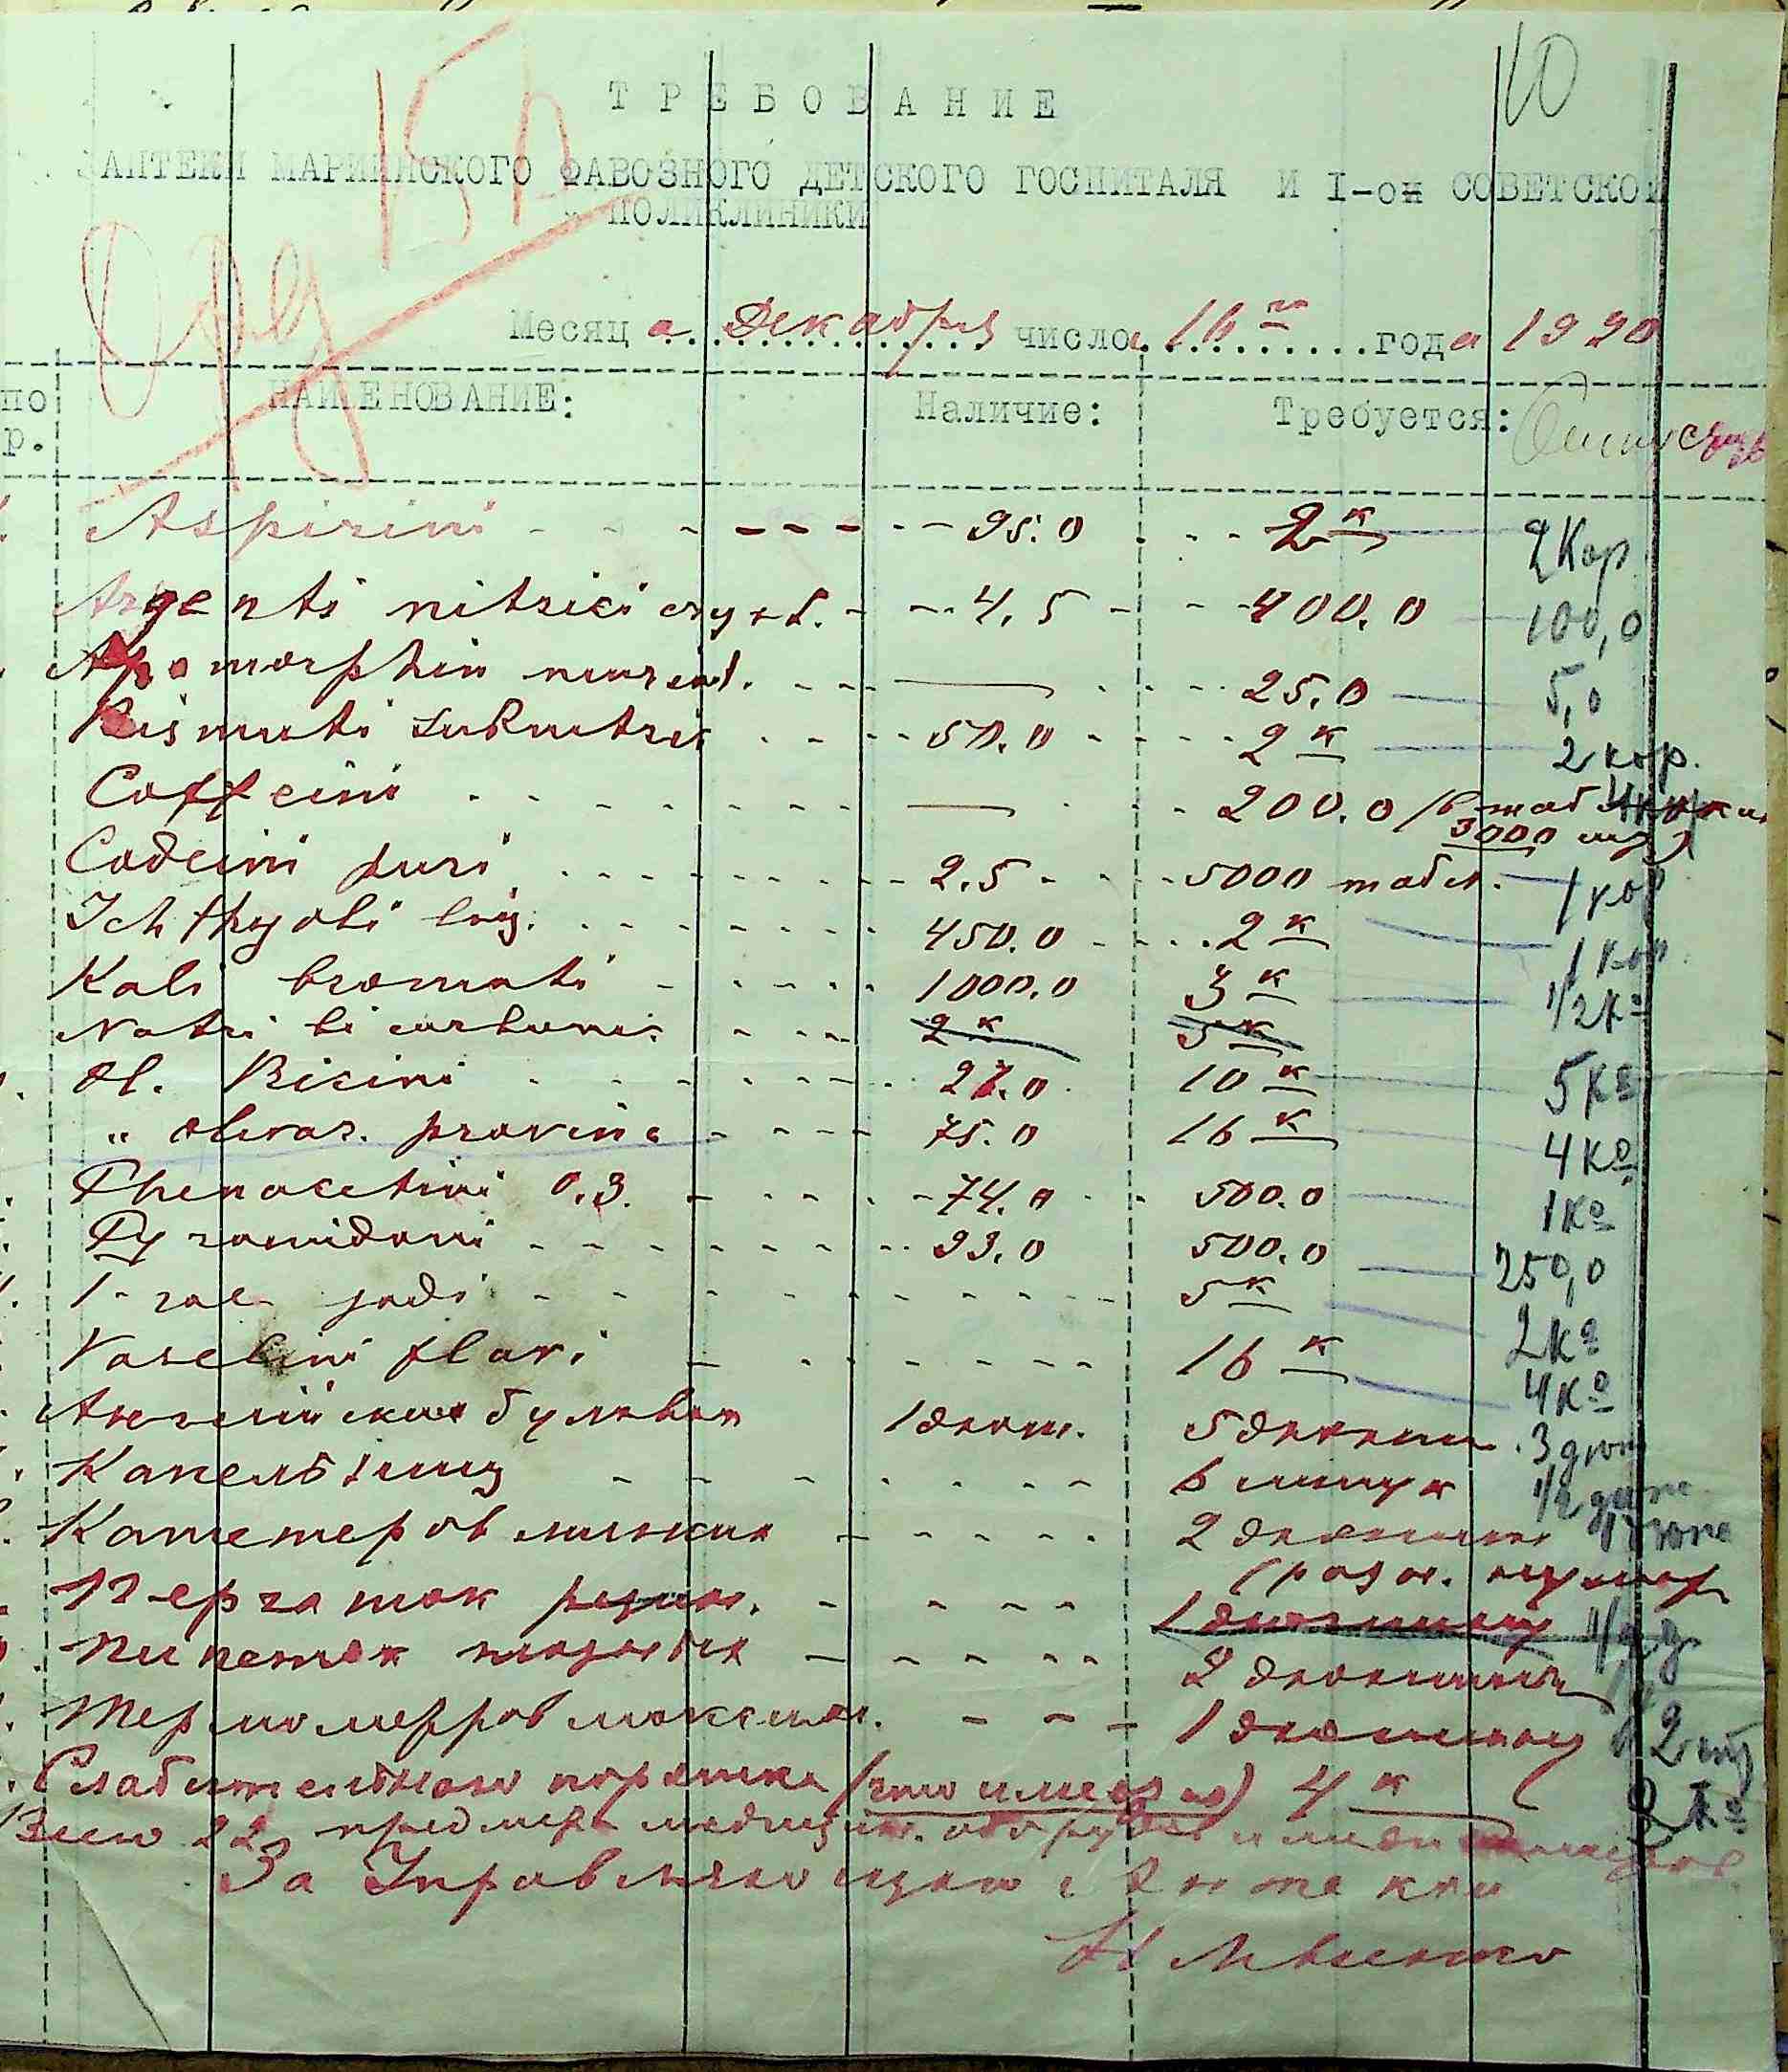 10
15 Д
Орд
ТРЕБОВАНИЕ
АПТЕКИ МАРИИНСКОГО ФАВОЗНОГО ДЕТСКОГО ГОСПИТАЛЯ И I-ой СОВЕТСКОЙ
ПОЛИКЛИНИКИ
Месяца Декабря числа 16 года 1920
по р. НАИМЕНОВАНИЕ: Наличие: Требуется:
Aspirini - - - 95.0 - - - 2 к 2 Кор
Argenti nitrici cryst. - - 4,5 - - 400.0 100,0
Apomorphin muriat. - - — - - 25,0 5,0
Bismuti subnitric - - - 50.0 - - - 2 к 2 кор.
Coffeini - - - — - - 200.0 (в таб
3000 шт)
Codeini puri - - - 2.5 - - 5000 табл. 1 кор
Ichthyoli - - - 450.0 - - 2 к 1 кор
Kali bromati - - - 1000.0 3 к 1/2 Ко
Natri bicarbonic - - - 2 к 5 к
Ol. Ricini - - - 27.0 10 к 5 Ко
" olivar. provinc - - - 75.0 16 к 4 Ко
Phenacetini 0.3. - - - 74.0 - - 500.0 1 Ко
Pyramidoni - - - 93.0 500.0 250,0
T-rae jodi - - - 5 к 2 Ко
Vaselini flavi - - - 16 к 4 Ко
Английских булавок 1 дюж. 5 дюжин 3 дюж
Капельниц - - - 6 штук 1/2 дюж
Катетеров мягких - - - 2 дюжины
(разн. номер
Перчаток резин. - - - 1 дюжину 1/2 д
Пипеток глазных - - - 2 дюжины
Термометров максим. - - - 1 дюжину 2 шт
Слабительного порошка (что имеется) 4 к 2 Ко
Всего 22 предмета медицин. оборудов и
За Управляющего Аптекой